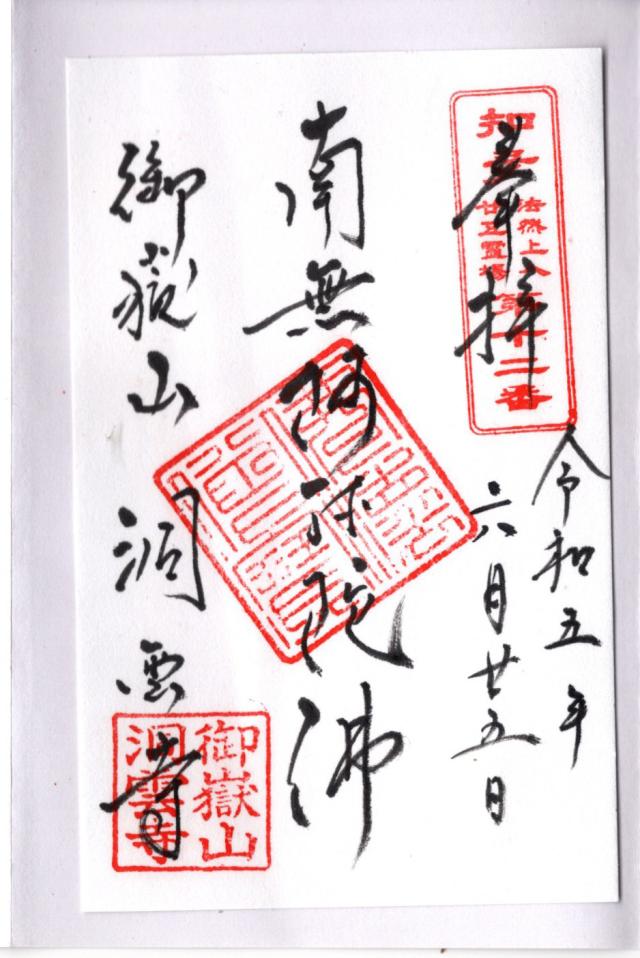 奉拝
知多
法然上人
廿五霊場
第十二番
令和五年
六月廿五日
南無阿弥陀佛
御嶽山 洞雲寺
御嶽山
洞雲寺